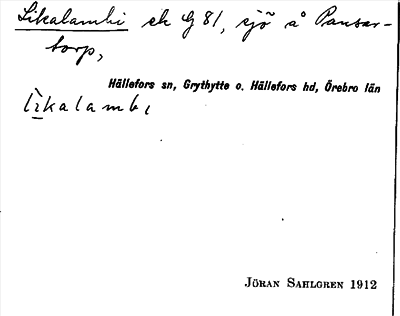 Likalambi ek G 81, sjö å Pansar-
torp,
Hällefors sn, Grythytte o. Hällefors hd, Örebro län
li̱̇̀kalambı
JÖRAN SAHLGREN 1912